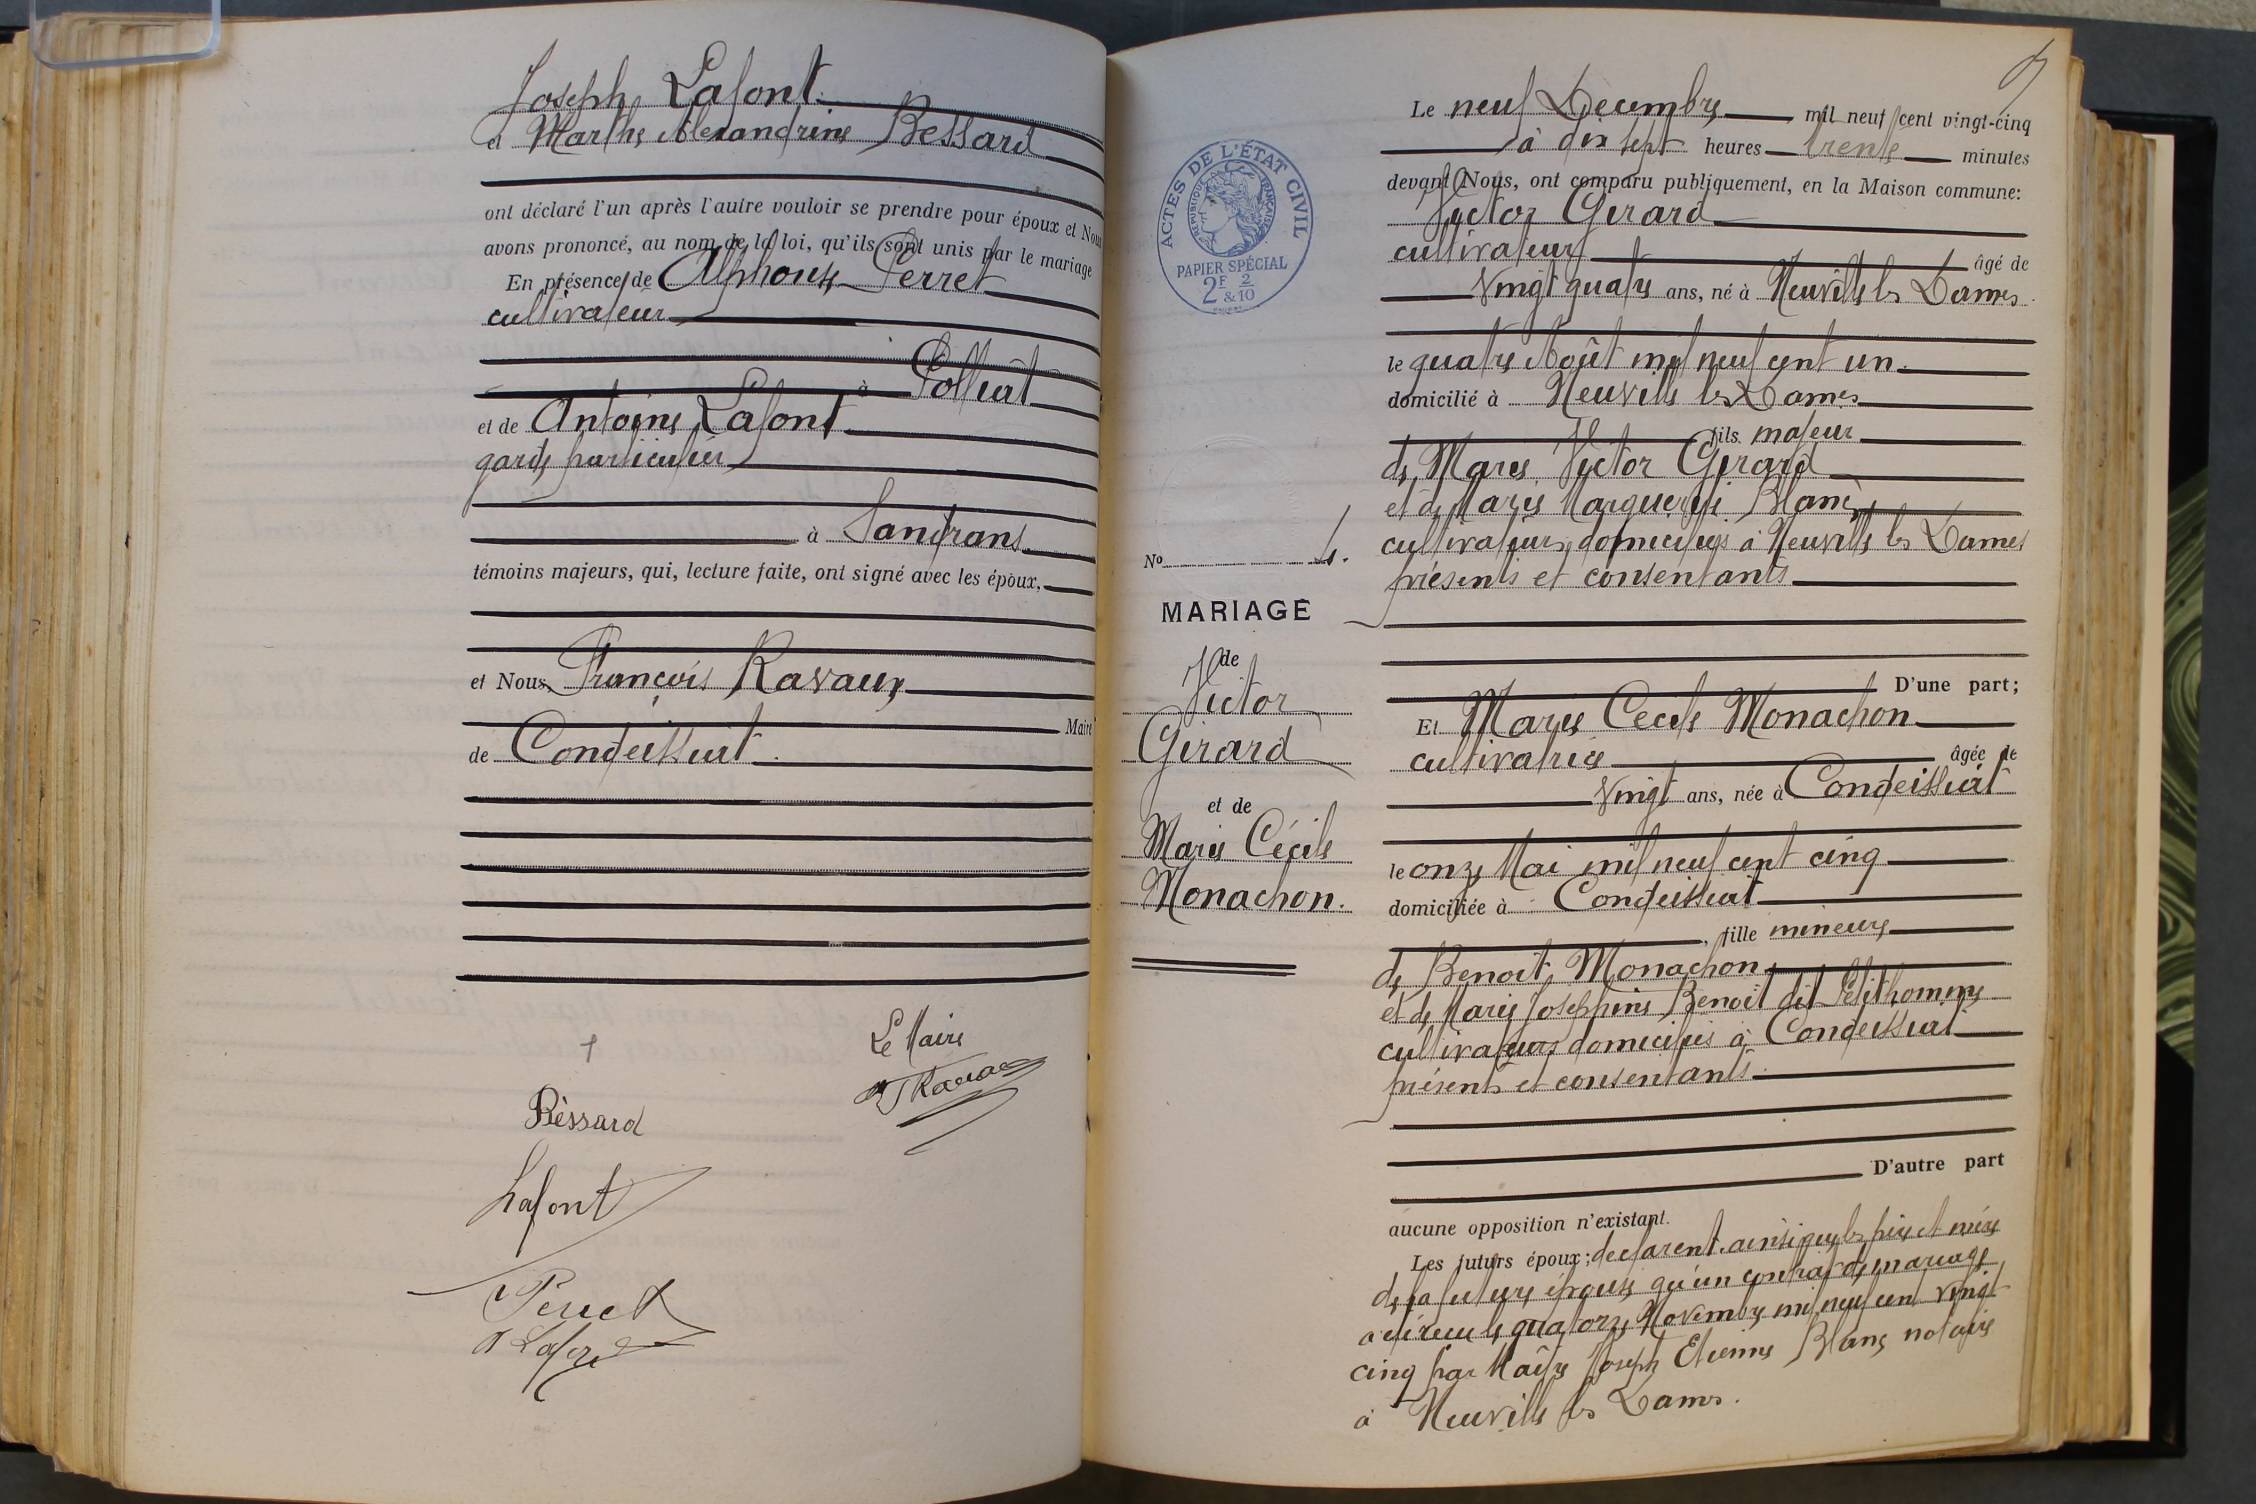 Joseph Lafont
et Marthe Alexandrine Bessard
ont déclaré l'un après l'autre vouloir se prendre pour époux et Nous
avons prononcé, au nom de la loi, qu'ils sont unis par le mariage
En présence de Alphonse Perret
cultivateur
à Polliat
et de Antoine Lafont
garde particulier
à Sandrans
témoins majeurs, qui, lecture faite, ont signé avec les époux,
et Nous, François Ravaux
Maire
de Condeissiat.
Le Maire
Ravaux
Bèssard
Lafont
Perret
Lafont
ACTES DE L'ÉTAT CIVIL
RÉPUBLIQUE FRANÇAISE
PAPIER SPÉCIAL
2F 2
& 10
No 4.
MARIAGE
de
Victor
Girard
et de
Marie Cécile
Monachon.
Le neuf Décembre mil neuf cent vingt-cinq
à dix sept heures trente minutes
devant Nous, ont comparu publiquement, en la Maison commune:
Victor Girard
cultivateur âgé de
vingt quatre ans, né à Neuville les Dames
le quatre Août mil neuf cent un
domicilié à Neuville les Dames
fils majeur
de Marie Victor Girard
et de Marie Marguerite Blanc
cultivateurs domiciliés à Neuville les Dames
présents et consentants
D'une part;
Et Marie Cécile Monachon
cultivatrice âgée de
vingt ans, née à Condeissiat
le onze Mai mil neuf cent cinq
domiciliée à Condeissiat
fille mineure
de Benoît Monachon
et de Marie Joséphine Benoît dit Petithomme
cultivateurs domiciliés à Condeissiat
présents et consentants.
D'autre part
aucune opposition n'existant.
Les futurs époux; déclarent ainsi que les père et mère
de la future épouse qu'un contrat de mariage
a été reçu le quatorze Novembre mil neuf cent vingt
cinq par Maître Joseph Etienne Blanc notaire
à Neuville les Dames.